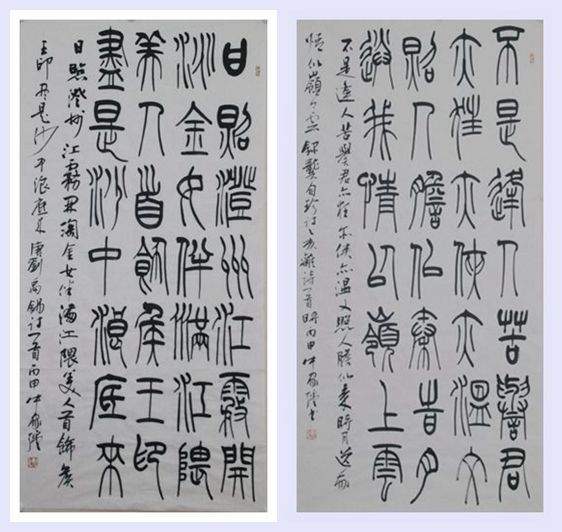 日照澄洲江霧開
淘金女伴滿江隈
美人首飾侯王印
盡是沙中浪底來
日照澄洲江霧開淘金女伴滿江隈美人首飾侯
王印盡是沙中浪底來 唐劉禹錫詩一首丙申
不是逢人苦譽君
亦狂亦俠亦溫文
照人膽似秦時月
送我情似嶺上雲
不是逢人苦譽君亦狂亦俠亦溫文照人膽似秦時月送我
情似嶺上雲 錄龔自珍己亥雜詩一首時丙申